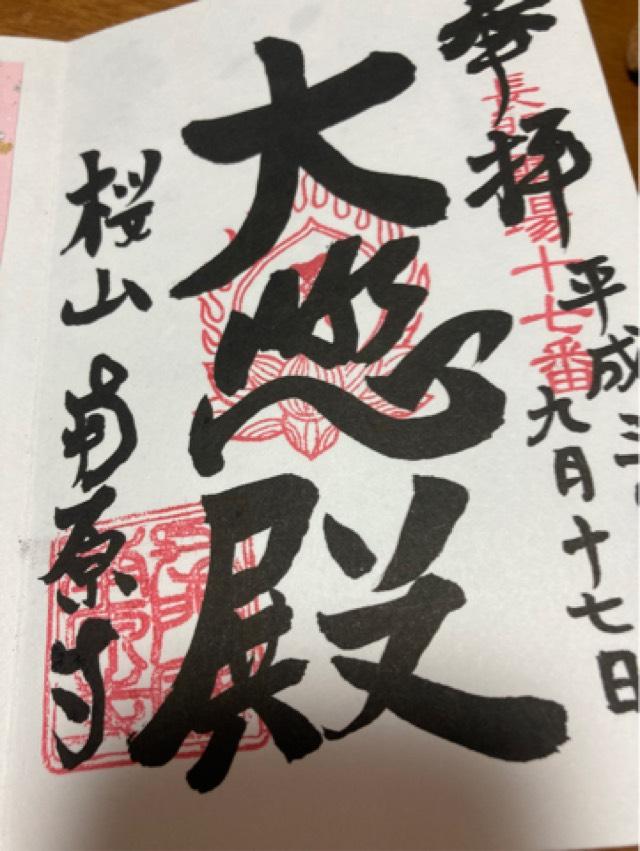 奉拝
長門霊場十七番
平成三
九月十七日
大悲殿
桜山 南原寺